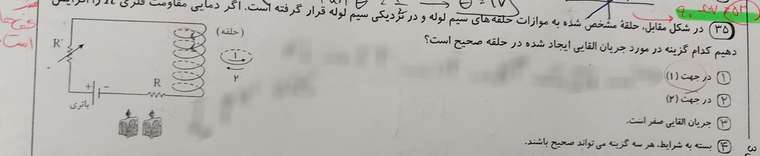 ۳۵) در شکل مقابل، حلقهٔ مشخص شده به موازات حلقه‌های سیم لوله و در نزدیکی سیم لوله قرار گرفته است. اگر دمای مقاومت فلزی R را افزایش
دهیم کدام گزینه در مورد جریان القایی ایجاد شده در حلقه صحیح است؟
۱) در جهت (۱)
۲) در جهت (۲)
۳) جریان القایی صفر است.
۴) بسته به شرایط، هر سه گزینه می تواند صحیح باشند.
(حلقه)
۱
۲
R'
R
+ -
باتری